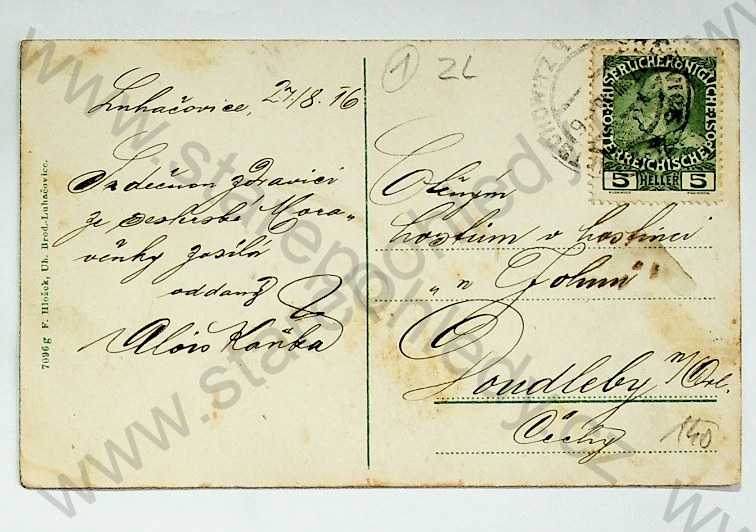 Luhačovice, 27/8. 16
Srdečnou zdravici
ze
věnky zasílá
oddaný
Alois Kaňka
7096g F. Hložek, Uh. Brod.-Luhačovice.
1 ZL
KAISERLICHE KÖNIGLICHE
ÖSTERREICHISCHE POST
5 HELLER 5
Ctěným
hostům v hostinci
„u
Doudleby n/Orl.
Čechy
140
www.starepohledy.cz